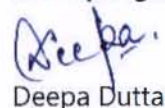 Deepa.
Deepa Dutta